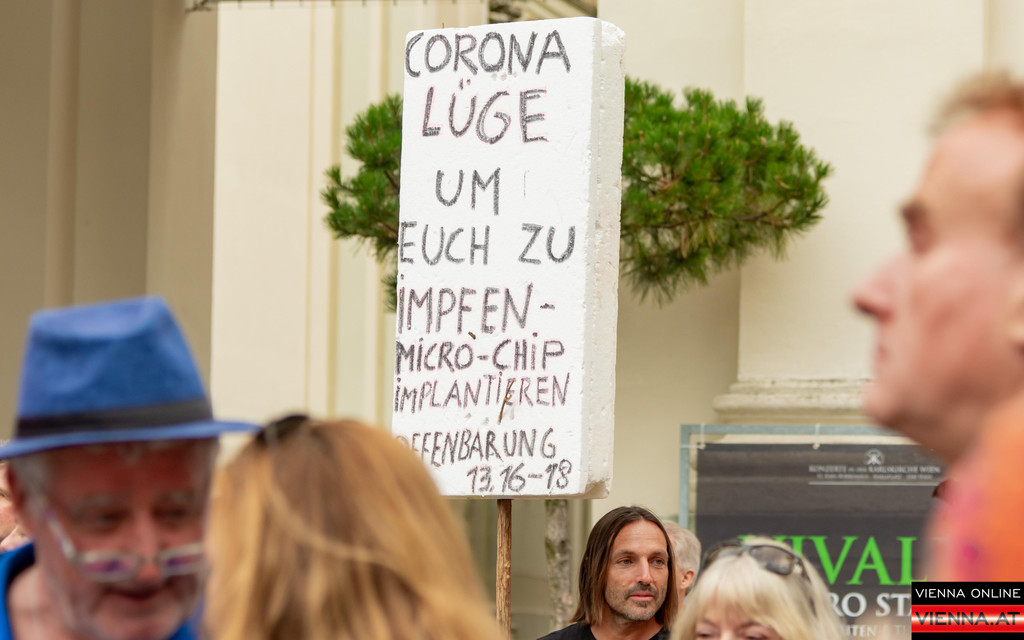 CORONA
LÜGE
UM
EUCH ZU
IMPFEN-
MICRO-CHIP
IMPLANTIEREN
OFFENBARUNG
13,16-18
KONZERTE IN DER KARLSKIRCHE WIEN
VIVAL
RO STA
VIENNA ONLINE
VIENNA.AT